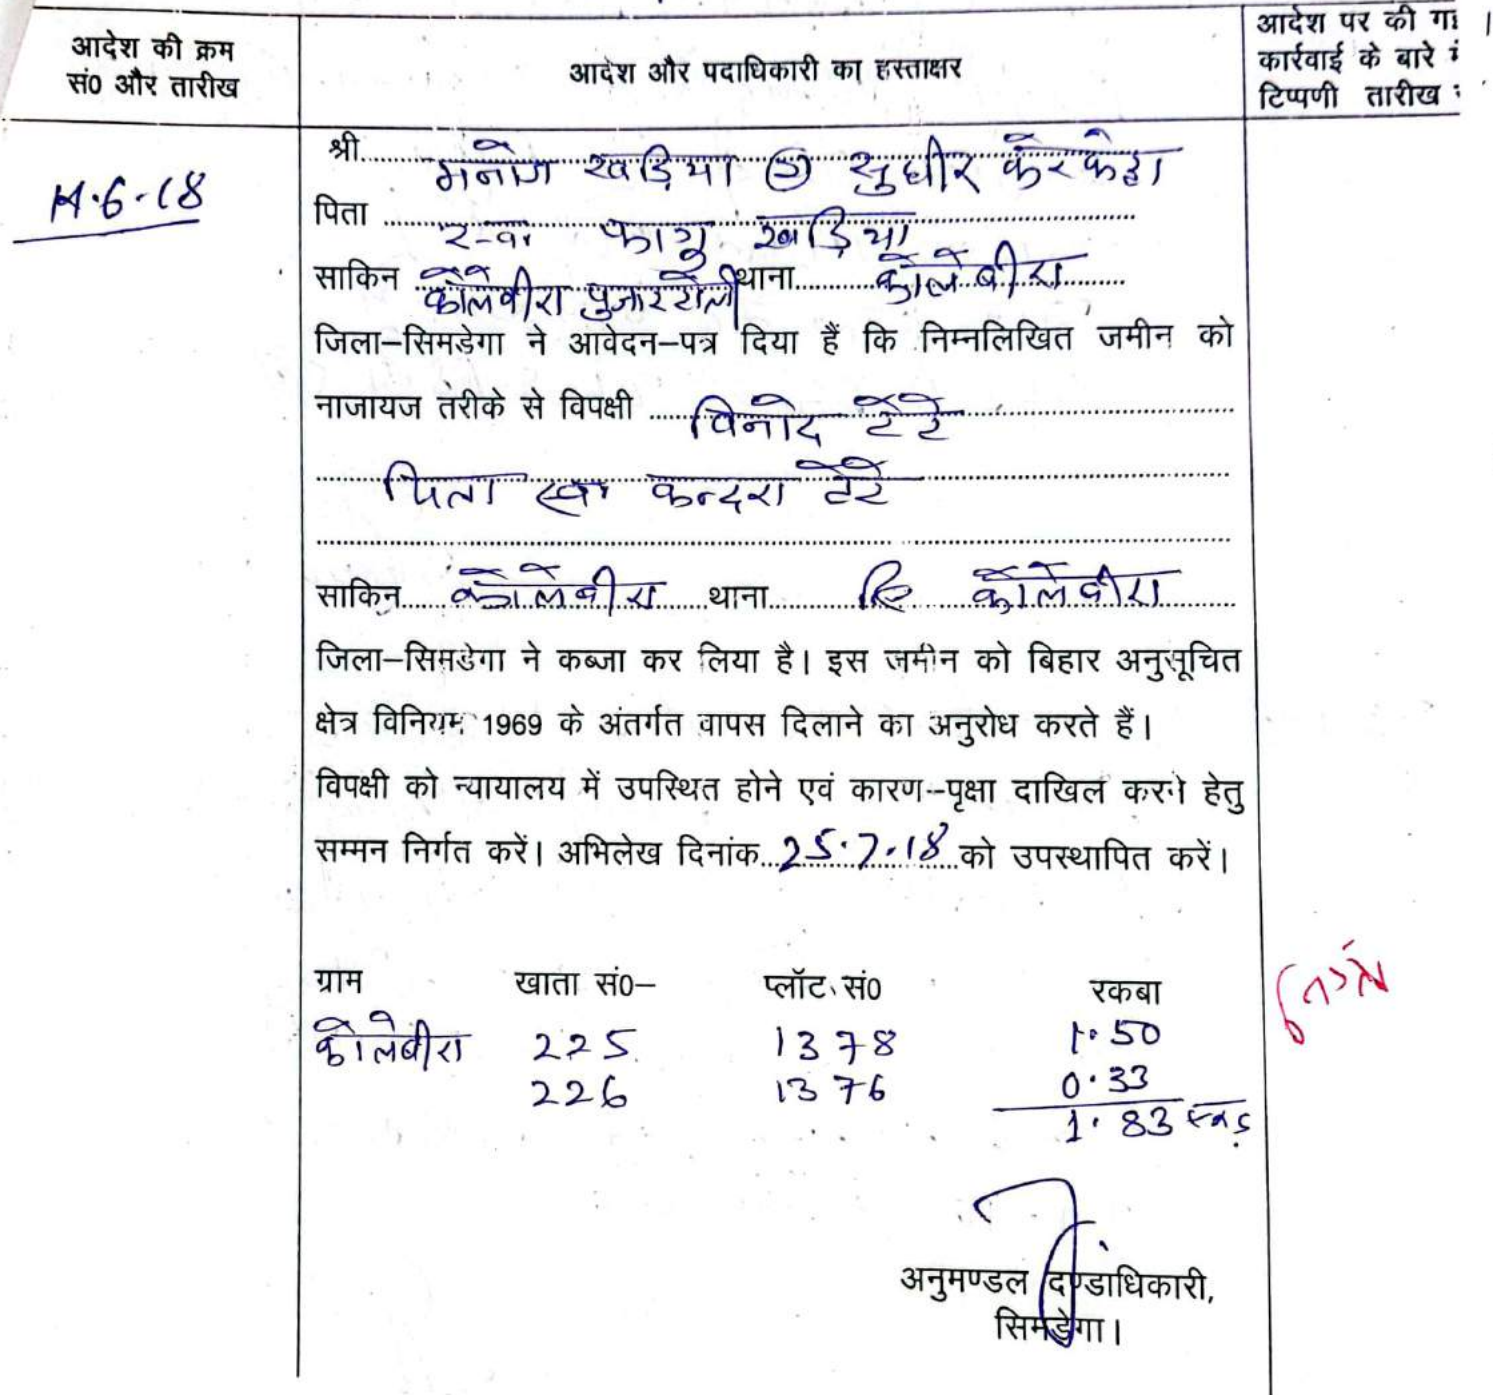 आदेश की क्रम
सं0 और तारीख
आदेश और पदाधिकारी का हस्ताक्षर
आदेश पर की गई
कार्रवाई के बारे में
टिप्पणी तारीख
14.6.18
श्री मनोज खड़िया सुधीर केरकेट्टा
पिता स्व0 फागु खड़िया
साकिन कोलेबीरा पुजारटोली थाना कोलेबीरा
जिला–सिमडेगा ने आवेदन–पत्र दिया है कि निम्नलिखित जमीन को
नाजायज तरीके से विपक्षी विनोद टेटे
पिता स्व0 कन्दरा टेटे
साकिन कोलेबीरा थाना कोलेबीरा
जिला–सिमडेगा ने कब्जा कर लिया है। इस जमीन को बिहार अनुसूचित
क्षेत्र विनियम 1969 के अंतर्गत वापस दिलाने का अनुरोध करते हैं।
विपक्षी को न्यायालय में उपस्थित होने एवं कारण–पृक्षा दाखिल करने हेतु
सम्मन निर्गत करें। अभिलेख दिनांक 25.7.18 को उपस्थापित करें।
ग्राम खाता सं0– प्लॉट सं0 रकबा
कोलेबीरा 225 1378 1.50
226 1376 0.33
1.83 एकड़
अनुमण्डल दण्डाधिकारी,
सिमडेगा।